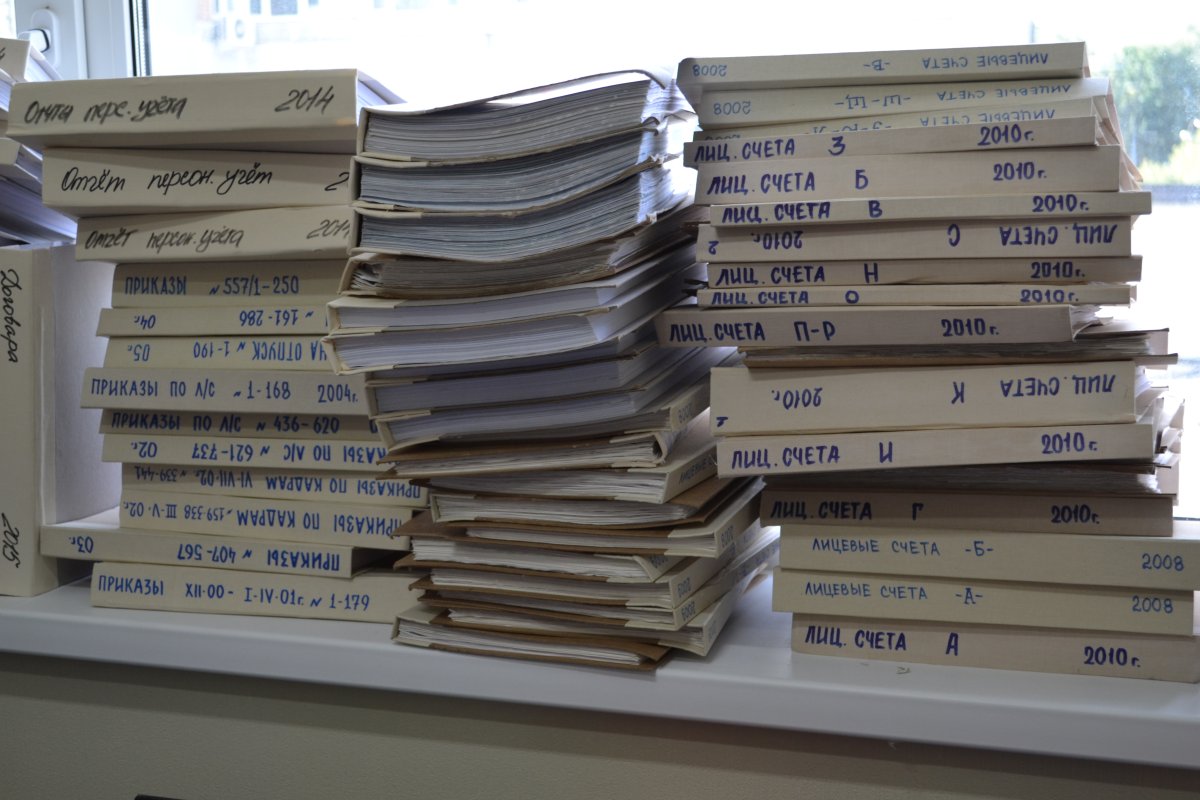 Договара
2015
Отчёт перс. учёта 2014
Отчёт персон. учёт 2
Отчёт персон. учёта 2014
ПРИКАЗЫ № 557/1-250
04г. № 161-286
05. ЧА ОТПУСК № 1-190
ПРИКАЗЫ ПО Л/С № 1-168 2004г.
ПРИКАЗЫ ПО Л/С № 436-620
КАЗЫ ПО Л/С № 621-737 02г.
ПРИКАЗЫ ПО КАДРАМ VI-VII-02г. 339-441
ПРИКАЗЫ ПО КАДРАМ № 159-338 III-V-02г.
ПРИКАЗЫ № 407-567 03г.
ПРИКАЗЫ XII-00- I-IV-01г. № 1-179
2009
ЛИЦЕВЫЕ
2009
2009
2009
2009
ЛИЦЕВЫЕ СЧЕТА -В- 2008
ЛИЦЕВЫЕ СЧЕТА -Ш-Щ- 2008
ЛИЦЕВЫЕ СЧЕТА
ЛИЦ. СЧЕТА З 2010г.
ЛИЦ. СЧЕТА Б 2010г.
ЛИЦ. СЧЕТА В 2010г.
ЛИЦ. СЧЕТА С 2010г.
ЛИЦ. СЧЕТА Н 2010г.
ЛИЦ. СЧЕТА О 2010г.
ЛИЦ. СЧЕТА П-Р 2010г.
ЛИЦ. СЧЕТА К 2010г.
ЛИЦ. СЧЕТА И 2010г.
ЛИЦ. СЧЕТА Г 2010г.
ЛИЦЕВЫЕ СЧЕТА -Б- 2008
ЛИЦЕВЫЕ СЧЕТА -А- 2008
ЛИЦ. СЧЕТА А 2010г.